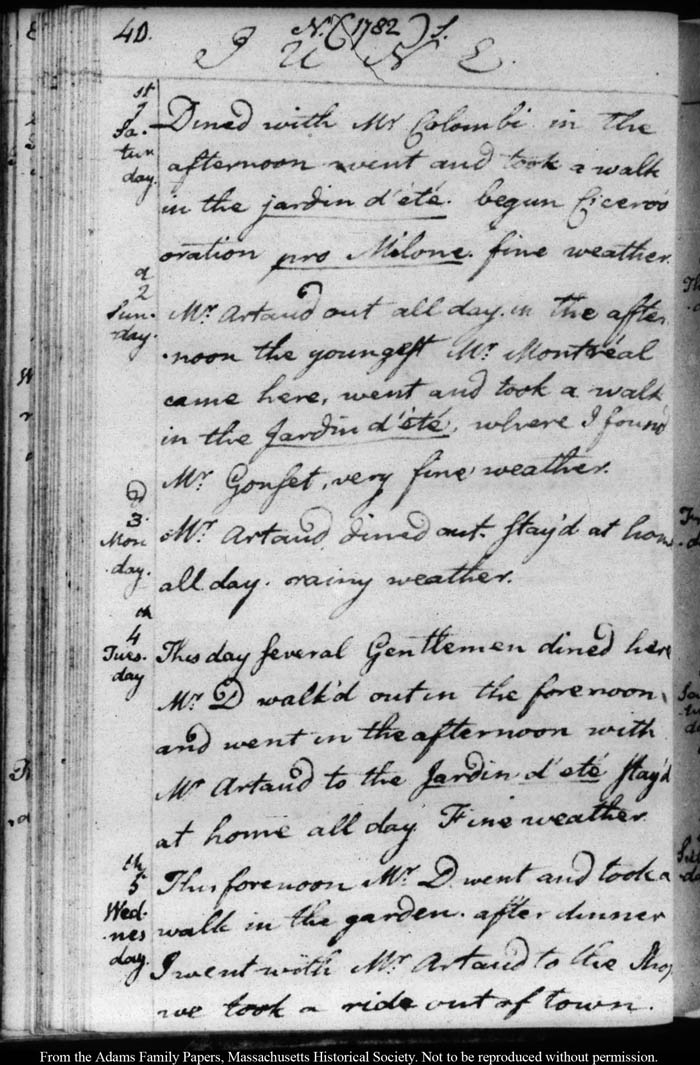 40. N.(1782) S.
JUNE.
st
1
Sa-
tur
day.
Dined with Mr Colombi in the
afternoon went and took a walk
in the jardin d'été. begun Cicero's
oration pro Milone. fine weather.
d
2
Sun-
day.
Mr. Artaud out all day. in the after
-noon the youngest Mr. Montréal
came here, went and took a walk
in the Jardin d'été, where I found
Mr. Gonset, very fine weather.
d
3.
Mon
day.
Mr. Artaud dined out. stay'd at home
all day. rainy weather.
th
4
Tues-
day
This day several Gentlemen dined here
Mr. D walk'd out in the forenoon,
and went in the afternoon with
Mr Artaud to the Jardin d'eté stay'd
at home all day. Fine weather.
th
5
Wed-
nes
day.
This forenoon Mr. D. went and took a
walk in the garden. after dinner
I went with Mr. Artaud to the Shop
we took a ride out of town.
From the Adams Family Papers, Massachusetts Historical Society. Not to be reproduced without permission.